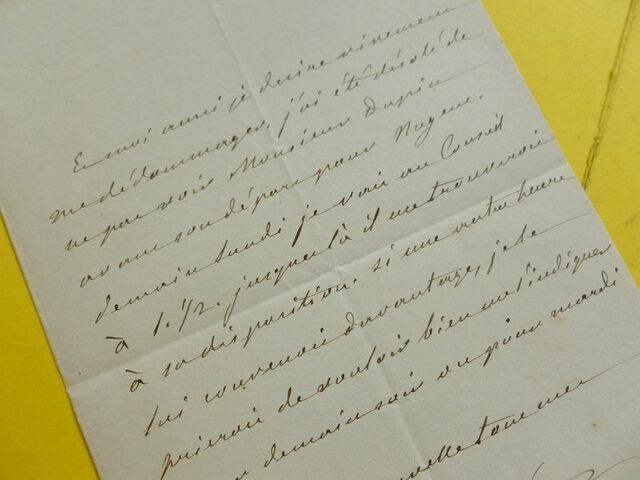 Et moi aussi je désire vivement
me dédommager, j'ai été désolé de
ne pas voir Monsieur Dupin
avant son départ pour Nogent.
demain lundi je vais au Conseil
à 1. 1/2. jusque là il me trouverait
à sa disposition. si une autre heure
lui convenait davantage, je le
prierais de vouloir bien me l'indiquer
demain soir ou pour mardi